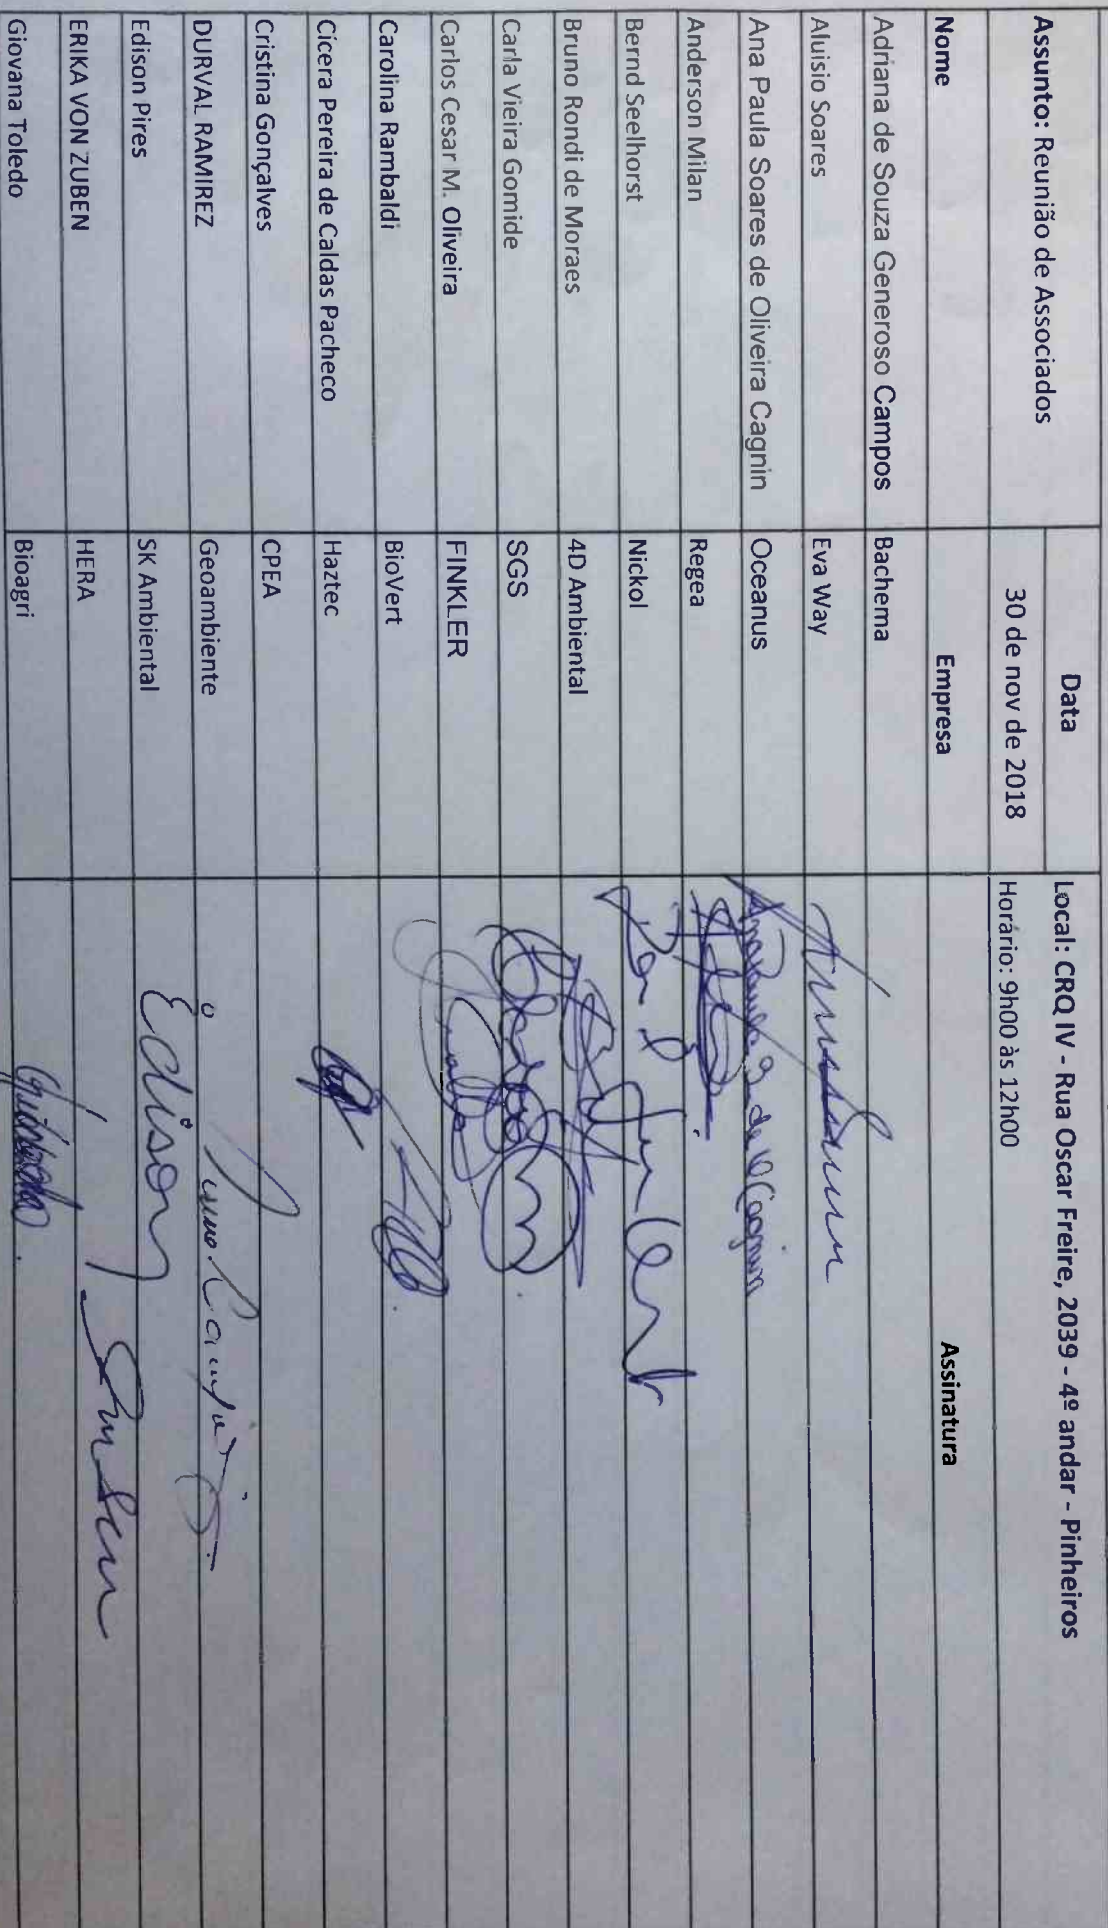 Assunto: Reunião de Associados
Data
Local: CRQ IV - Rua Oscar Freire, 2039 - 4º andar - Pinheiros
30 de nov de 2018
Horário: 9h00 às 12h00
Nome Empresa Assinatura
Adriana de Souza Generoso Campos Bachema
Aluisio Soares Eva Way
Ana Paula Soares de Oliveira Cagnin Oceanus
Anderson Milan Regea
Bernd Seelhorst Nickol
Bruno Rondi de Moraes 4D Ambiental
Carla Vieira Gomide SGS
Carlos Cesar M. Oliveira FINKLER
Carolina Rambaldi BioVert
Cícera Pereira de Caldas Pacheco Haztec
Cristina Gonçalves CPEA
DURVAL RAMIREZ Geoambiente
Edison Pires SK Ambiental Edison
ERIKA VON ZUBEN HERA
Giovana Toledo Bioagri